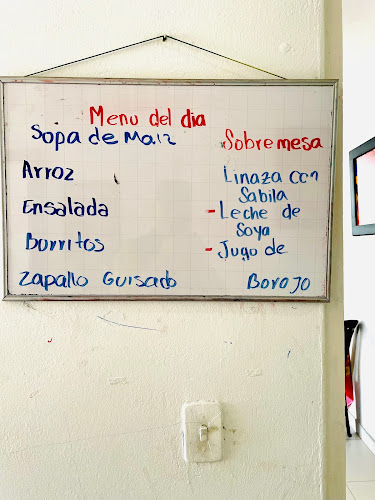 Menu del dia
Sopa de Maiz
Arroz
Ensalada
Burritos
Zapallo Guisado
Sobremesa
Linaza con
Sabila
- Leche de
Soya
- Jugo de
Borojo